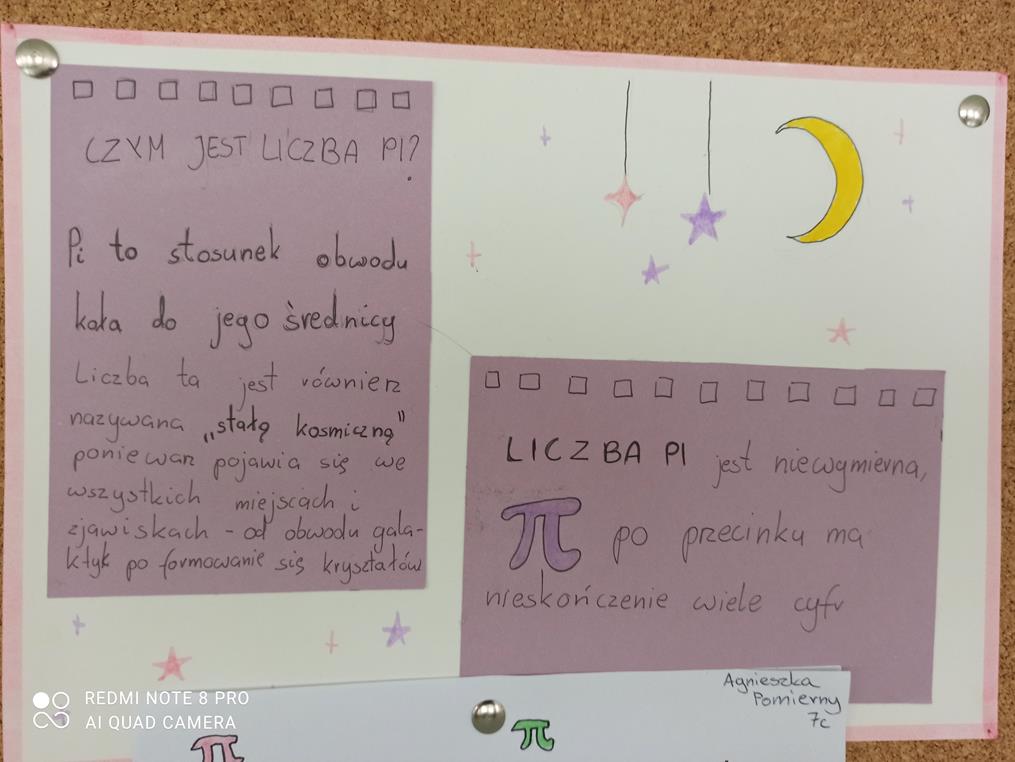 CZYM JEST LICZBA PI?
Pi to stosunek obwodu
koła do jego średnicy
Liczba ta jest również
nazywana „stałą kosmiczną"
ponieważ pojawia się we
wszystkich miejscach i
zjawiskach - od obwodu gala-
ktyk po formowanie się kryształów
LICZBA PI jest niewymierna,
π po przecinku ma
nieskończenie wiele cyfr
Agnieszka
Pomierny
7c
π π
REDMI NOTE 8 PRO
AI QUAD CAMERA